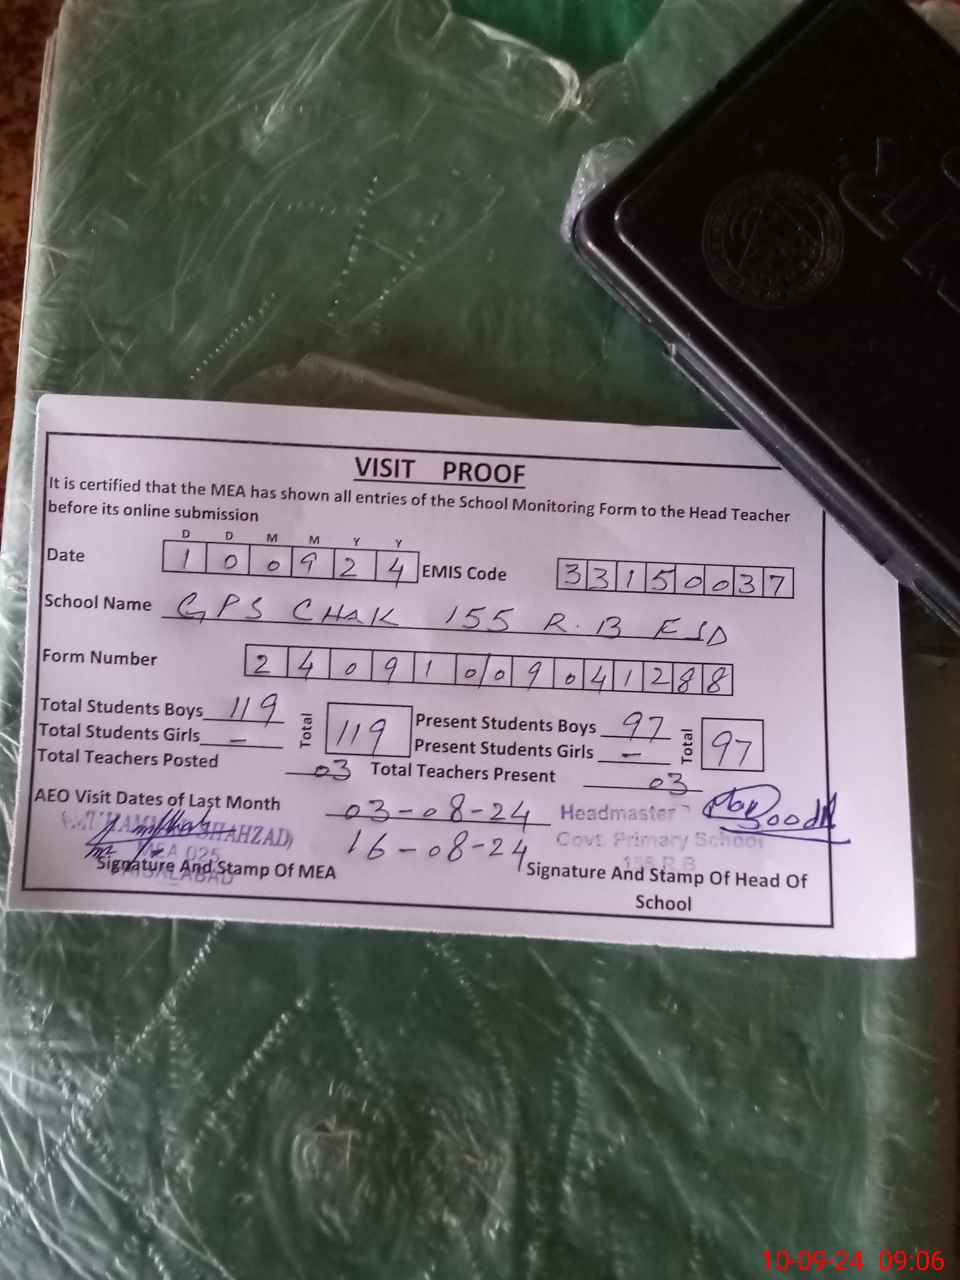 VISIT PROOF
It is certified that the MEA has shown all entries of the School Monitoring Form to the Head Teacher
before its online submission
D D M M Y Y
Date 1 0 0 9 2 4 EMIS Code 3 3 1 5 0 0 3 7
School Name GPS CHAK 155 R.B FSD
Form Number 2 4 0 9 1 0 0 9 0 4 1 2 8 8
Total Students Boys 119 Total 119 Present Students Boys 97 Total 97
Total Students Girls - Present Students Girls -
Total Teachers Posted 03 Total Teachers Present 03
AEO Visit Dates of Last Month 03-08-24 Headmaster
SHAHZAD) 16-08-24 Govt. Primary School
MEA 025 155 R.B
Signature And Stamp Of MEA Signature And Stamp Of Head Of
FAISALABAD School
10-09-24 09:06